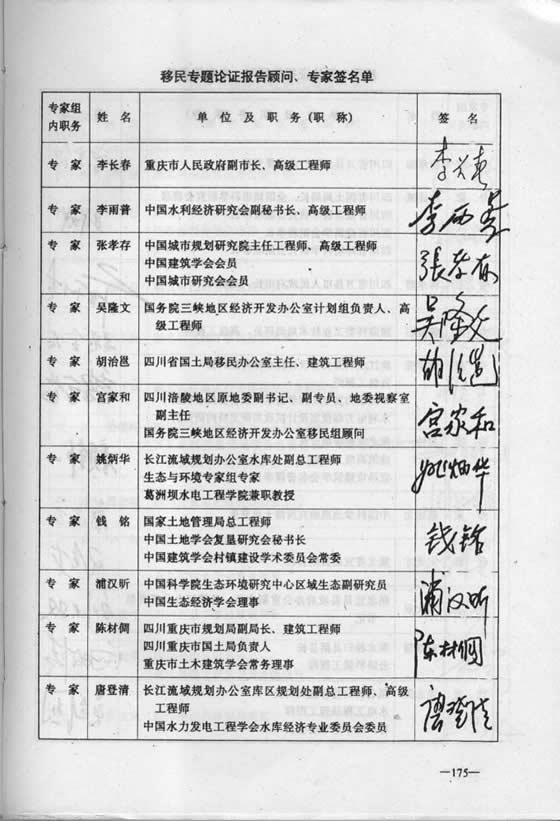 移民专题论证报告顾问、专家签名单
专家组
内职务
姓 名
单 位 及 职 务 (职 称)
签 名
专 家 李长春 重庆市人民政府副市长、高级工程师 李长春
专 家 李雨普 中国水利经济研究会副秘书长、高级工程师 李雨普
专 家 张孝存 中国城市规划研究院主任工程师、高级工程师 張孝存
中国建筑学会会员
中国城市研究会会员
专 家 吴隆文 国务院三峡地区经济开发办公室计划组负责人、高 吴隆文
级工程师
专 家 胡治邕 四川省国土局移民办公室主任、建筑工程师
专 家 宫家和 四川涪陵地区原地委副书记、副专员、地委视察室 宫家和
副主任
国务院三峡地区经济开发办公室移民组顾问
专 家 姚炳华 长江流域规划办公室水库处副总工程师 姚炳华
生态与环境专家组专家
葛洲坝水电工程学院兼职教授
专 家 钱 铭 国家土地管理局总工程师 钱铭
中国土地学会复垦研究会秘书长
中国建筑学会村镇建设学术委员会常委
专 家 浦汉昕 中国科学院生态环境研究中心区域生态副研究员 浦汉昕
中国生态经济学会理事
专 家 陈材倜 四川重庆市规划局副局长、建筑工程师
四川重庆市国土局负责人
重庆市土木建筑学会常务理事
专 家 唐登清 长江流域规划办公室库区规划处副总工程师、高级 唐登清
工程师
中国水力发电工程学会水库经济专业委员会委员
—175—